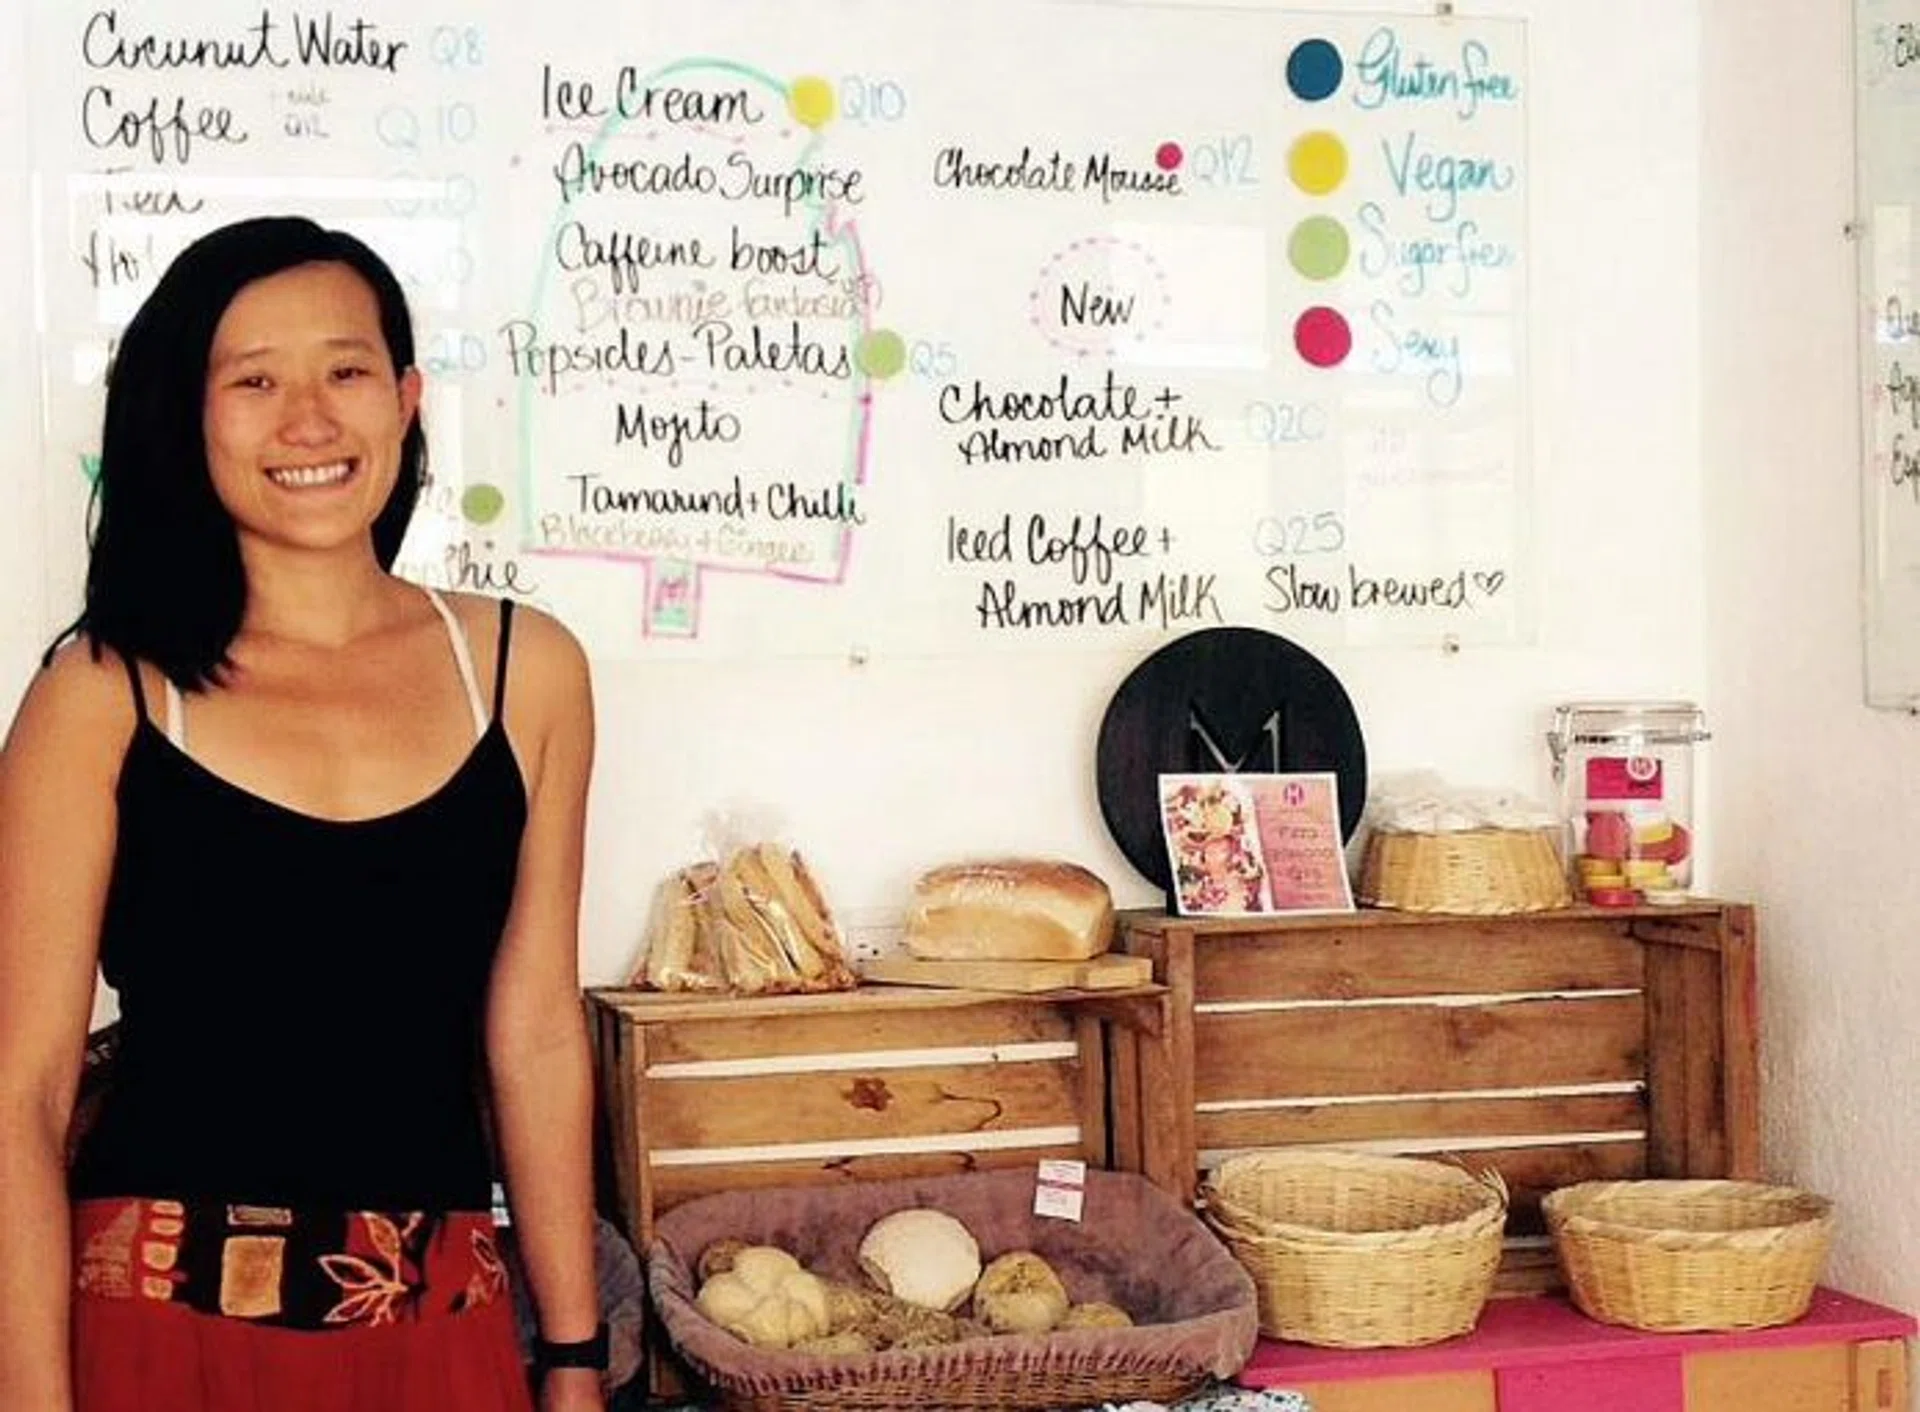 Cocunut Water Q8
Coffee Q10
Q12
Tea Q10
Q20
Ice Cream Q10
Avocado Surprise
Caffeine boost
Brownie fantasia
Popsicles - Paletas Q5
Mojito
Tamarind + Chilli
Blackberry + Ginger
Chocolate Mousse Q12
New
Chocolate + Q20
Almond Milk
Iced Coffee + Q25
Almond Milk Slow brewed
Gluten free
Vegan
Sugar free
Sexy
M